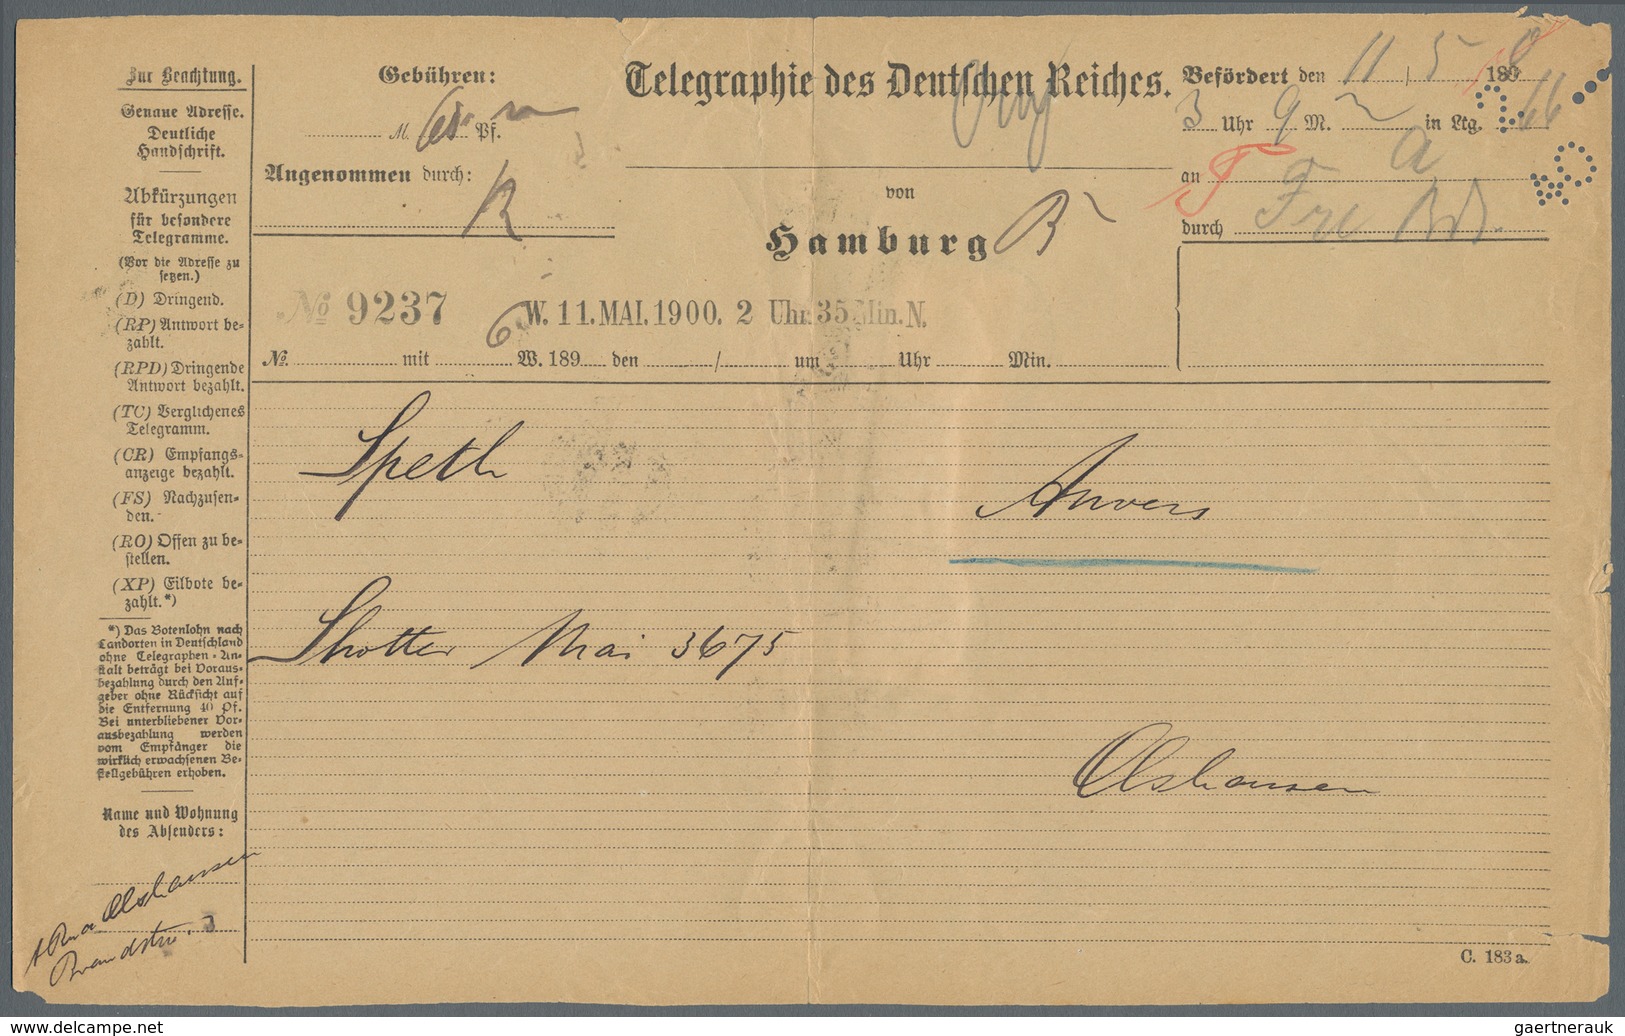 Zur Beachtung.
Genaue Adresse.
Deutliche
Handschrift.
Abkürzungen
für besondere
Telegramme.
(Vor die Adresse zu
setzen.)
(D) Dringend.
(RP) Antwort be-
zahlt.
(RPD) Dringende
Antwort bezahlt.
(TC) Verglichenes
Telegramm.
(CR) Empfangs-
anzeige bezahlt.
(FS) Nachzusen-
den.
(RO) Offen zu be-
stellen.
(XP) Eilbote be-
zahlt.*)
*) Das Botenlohn nach
Landorten in Deutschland
ohne Telegraphen-An-
stalt beträgt bei Voraus-
bezahlung durch den Auf-
geber ohne Rücksicht auf
die Entfernung 40 Pf.
Bei unterbliebener Vor-
ausbezahlung werden
vom Empfänger die
wirklich erwachsenen Be-
stellgebühren erhoben.
Name und Wohnung
des Absenders:
Olshausen
Gebühren:
M. Pf.
Angenommen durch:
R
Telegraphie des Deutschen Reiches.
von
Hamburg
Befördert den 11/5 189
3 Uhr 9 M. in Ltg. 66
an a
durch
No 9237 W. 11. MAI. 1900. 2 Uhr 35 Min. N.
No. mit 6 W. 189 den / um Uhr Min.
Speth Anvers
Shotter Mai 3675
Olshausen
C. 183 a.
gaertnerauk on www.delcampe.net
gaertnerauk